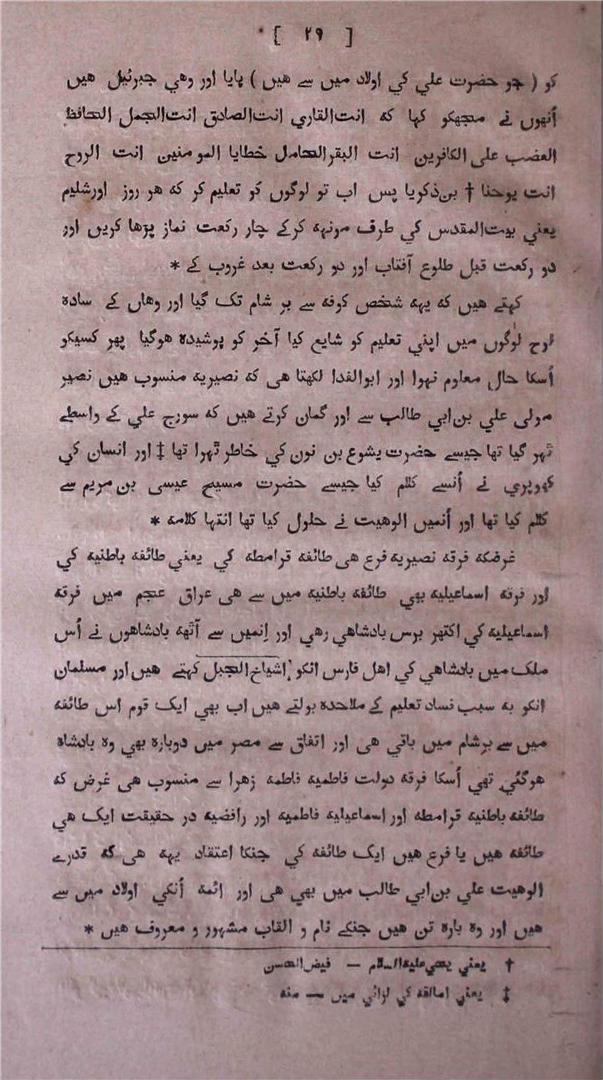 [ ٢٩ ]
کو ( جو حضرت علي کي اولاد میں سے هیں ) پایا اور وهي جبرئیل هیں
اُنهوں نے مجهکو کہا که انت‌القاري انت‌الصادق انت‌الجمل الحافظ
الغضب علی الکافرین انت البقرالحامل خطایا المومنین انت الروح
انت یوحنا † بن‌ذکریا پس اب تو لوگوں کو تعلیم کر که هر روز اورشلیم
یعني بیت‌المقدس کي طرف مونہه کرکے چار رکعت نماز پڑها کریں اور
دو رکعت قبل طلوع آفتاب اور دو رکعت بعد غروب کے *
کہتے هیں که یہه شخص کوفه سے بر شام تک گیا اور وهاں کے ساده
لوح لوگوں میں اپني تعلیم کو شایع کیا آخر کو پوشیده هوگیا پهر کسیکو
اُسکا حال معلوم نہوا اور ابوالفدا لکهتا هی که نصیریه منسوب هیں نصیر
مولی علي بن‌ابي طالب سے اور گمان کرتے هیں که سورج علي کے واسطے
ٹہر گیا تها جیسے حضرت یشوع بن نون کي خاطر ٹہرا تها ‡ اور انسان کي
کهوپري نے اُنسے کلام کیا جیسے حضرت مسیح عیسی بن مریم سے
کلام کیا تها اور اُنمیں الوهیت نے حلول کیا تها انتہا کلامه *
غرضکه فرقه نصیریه فرع هی طائفه قرامطه کي یعني طائفه باطنیه کي
اور فرقه اسماعیلیه بهي طائفه باطنیه میں سے هی عراق عجم میں فرقه
اسماعیلیه کي اکتہر برس بادشاهي رهي اور اِنمیں سے آٹهه بادشاهوں نے اُس
ملک میں بادشاهي کي اهل فارس انکو اشیاخ‌الجبل کہتے هیں اور مسلمان
انکو به سبب فساد تعلیم کے ملاحده بولتے هیں اب بهي ایک قوم اس طائفه
میں سے برشام میں باقي هی اور اتفاق سے مصر میں دوباره بهي وه بادشاه
هوگئي تهي اُسکا فرقه دولت فاطمیه فاطمه زهرا سے منسوب هی غرض که
طائفه باطنیه قرامطه اور اسماعیلیه فاطمیه اور رافضیه در حقیقت ایک هي
طائفه هیں یا فرع هیں ایک طائفه کي جنکا اعتقاد یہه هی که قدرے
الوهیت علي بن‌ابي طالب میں بهي هی اور ائمه اُنکي اولاد میں سے
هیں اور وه باره تن هیں جنکے نام و القاب مشہور و معروف هیں *
† یعني یحیی علیه‌السلام — فیض‌الحسن
‡ یعني امالقه کي لڑائي میں — منه